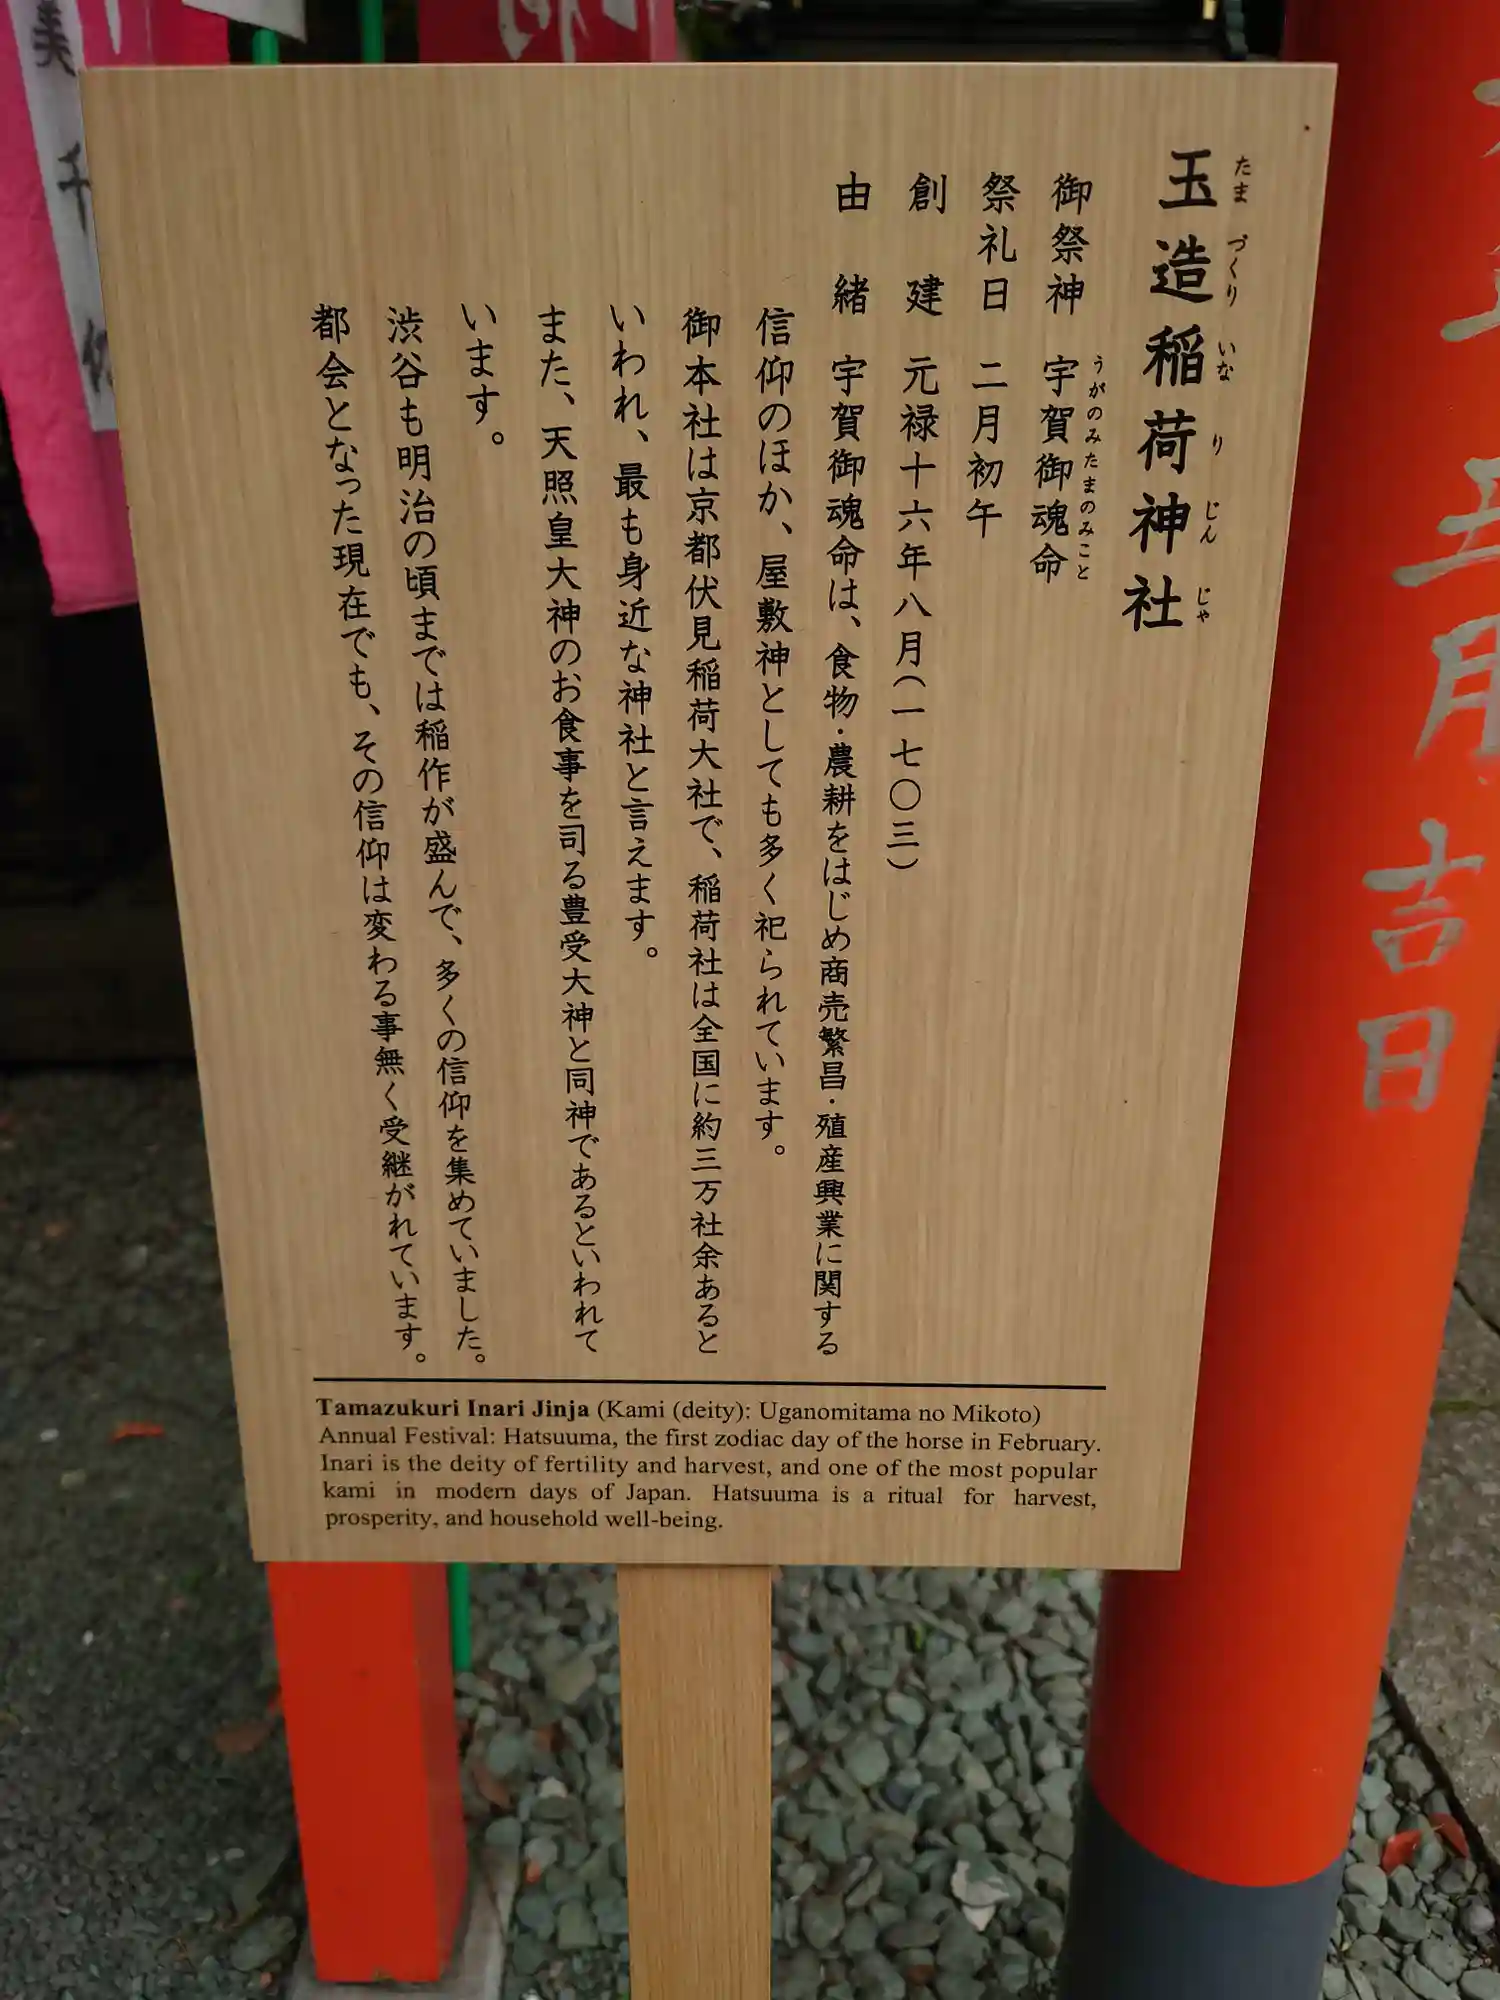 玉造稲荷神社
たまづくりいなりじんじゃ
御祭神 宇賀御魂命
うがのみたまのみこと
祭礼日 二月初午
創建 元禄十六年八月(一七〇三)
由緒 宇賀御魂命は、食物・農耕をはじめ商売繁昌・殖産興業に関する
信仰のほか、屋敷神としても多く祀られています。
御本社は京都伏見稲荷大社で、稲荷社は全国に約三万社余あると
いわれ、最も身近な神社と言えます。
また、天照皇大神のお食事を司る豊受大神と同神であるといわれて
います。
渋谷も明治の頃までは稲作が盛んで、多くの信仰を集めていました。
都会となった現在でも、その信仰は変わる事無く受継がれています。
Tamazukuri Inari Jinja (Kami (deity): Uganomitama no Mikoto)
Annual Festival: Hatsuuma, the first zodiac day of the horse in February.
Inari is the deity of fertility and harvest, and one of the most popular
kami in modern days of Japan. Hatsuuma is a ritual for harvest,
prosperity, and household well-being.
五月吉日